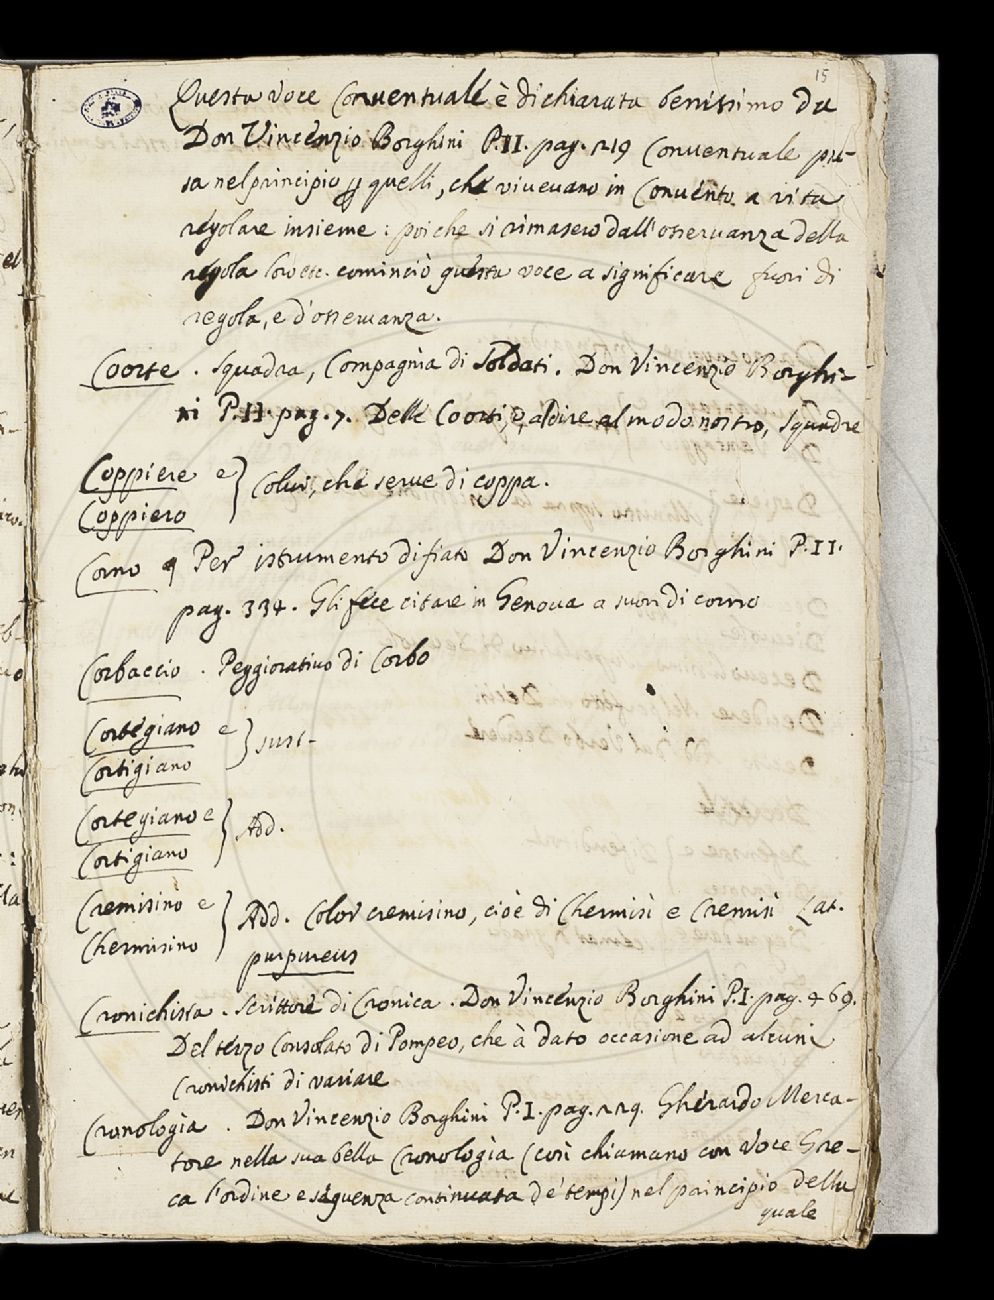 15
Questa voce Conventuale è dichiarata benissimo da
Don Vincenzio Borghini P.II. pag. 219 Conventuale pu-
sa nel principio quelli, che vivevano in Convento a vita
regolare insieme: poiche si rimasero dall'osservanza della
regola loro etc. cominciò questa voce a significare fuori di
regola, e d'osservanza.
Coorte. Squadra, Compagnia di Soldati. Don Vincenzio Borghi-
ni P.II. pag. 7. Delle Coorti, e, al dire al modo nostro, squadre
Coppiere e } Colui, che serve di coppa.
Coppiero
Corno Per istrumento di fiato Don Vincenzio Borghini P.II.
pag. 334. Gli fece citare in Genova a suon di corno
Corbaccio. Peggiorativo di Corbo
Cortegiano e } sust.
Cortigiano
Cortegiano e } Add.
Cortigiano
Cremisino e } Add. Color cremisino, cioè di Chermisì e Cremisì Lat.
Chermisino
purpureus
Cronichista. Scrittore di Cronica. Don Vincenzio Borghini P.I. pag. 469.
Del terzo Consolato di Pompeo, che à dato occasione ad alcuni
Cronichisti di variare
Cronologia. Don Vincenzio Borghini P.I. pag. 229. Gherardo Merca-
tore nella sua bella Cronologia (così chiamano con voce Gre-
ca l'ordine e seguenza continuata de' tempi) nel principio della
quale